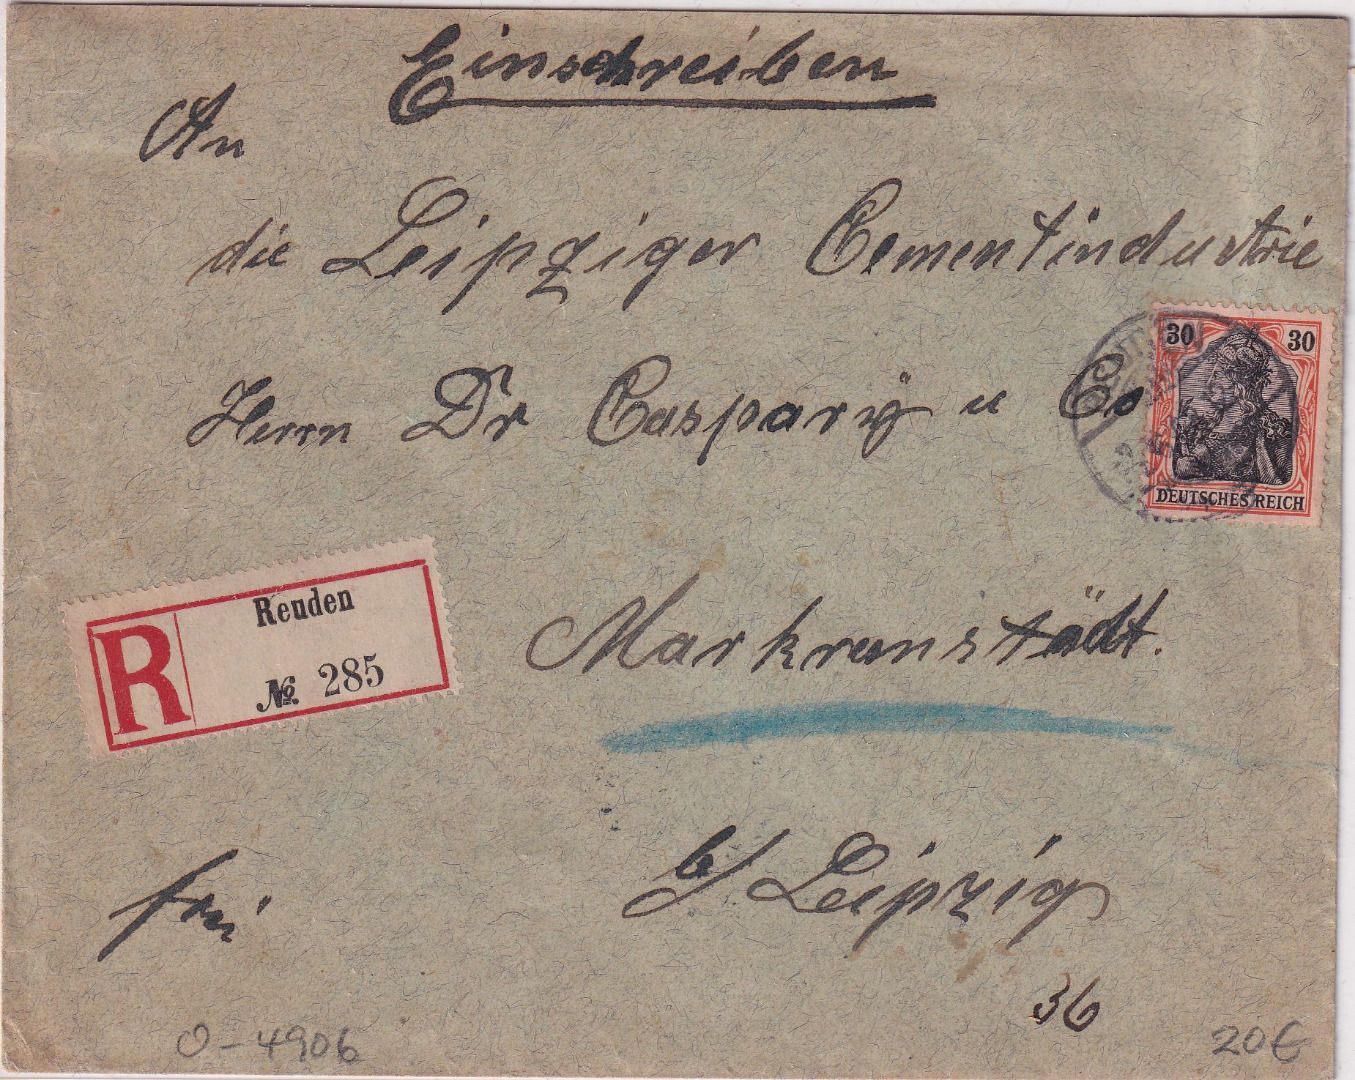 Einschreiben
An
die Leipziger Cementindustrie
Herrn Dr Caspary u Co
30 30
DEUTSCHES REICH
R
Reuden
№. 285
Markranstädt.
b/ Leipzig
frei
36
O-4906
20€